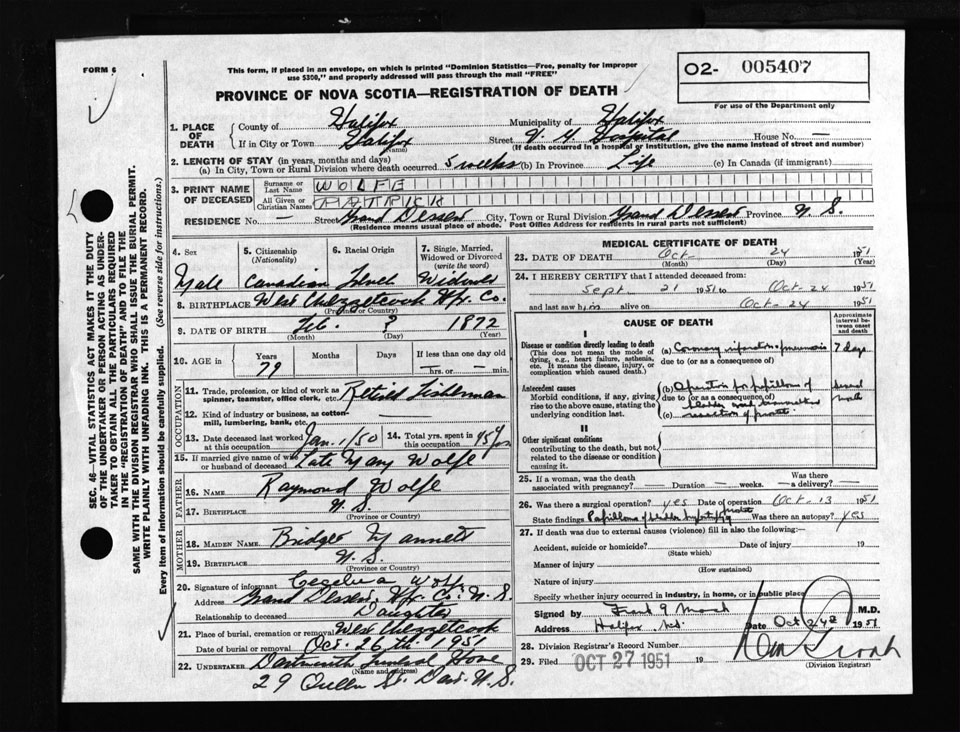 FORM 6
This form, if placed in an envelope, on which is printed "Dominion Statistics—Free, penalty for improper
use $300," and properly addressed will pass through the mail "FREE"
O2- 005407
For use of the Department only
PROVINCE OF NOVA SCOTIA—REGISTRATION OF DEATH
1. PLACE OF DEATH
County of Halifax Municipality of Halifax
If in City or Town Halifax Street V. G. Hospital House No. —
(Name) (If death occurred in a hospital or institution, give the name instead of street and number)
2. LENGTH OF STAY (in years, months and days)
(a) In City, Town or Rural Division where death occurred 5 weeks (b) In Province Life (c) In Canada (if immigrant)
3. PRINT NAME OF DECEASED
Surname or Last Name WOLFE
All Given or Christian Names PATRICK
RESIDENCE No. — Street Grand Desert City, Town or Rural Division Grand Desert Province N. S.
(Residence means usual place of abode. Post Office Address for residents in rural parts not sufficient)
4. Sex Male
5. Citizenship (Nationality) Canadian
6. Racial Origin
7. Single, Married, Widowed or Divorced (write the word) Widower
8. BIRTHPLACE West Chezzetcook Hfx. Co.
(Province or Country)
9. DATE OF BIRTH Feb. 1872
(Month) (Day) (Year)
10. AGE in Years 79 Months Days If less than one day old
hrs. or min.
OCCUPATION
11. Trade, profession, or kind of work as spinner, teamster, office clerk, etc. Retired Fisherman
12. Kind of industry or business, as cotton-mill, lumbering, bank, etc.
13. Date deceased last worked at this occupation Jan. 1/50
14. Total yrs. spent in this occupation 45 yrs
15. If married give name of wife or husband of deceased Late Mary Wolfe
FATHER
16. NAME Raymond Wolfe
17. BIRTHPLACE N. S.
(Province or Country)
MOTHER
18. MAIDEN NAME
19. BIRTHPLACE N. S.
(Province or Country)
20. Signature of informant
Address Grand Desert, Hfx. Co. N. S.
Relationship to deceased Daughter
21. Place of burial, cremation or removal West Chezzetcook
Date of burial or removal Oct. 26th. 1951
22. UNDERTAKER Dartmouth Funeral Home
(Name and address)
29 Queen St. Dart. N. S.
MEDICAL CERTIFICATE OF DEATH
23. DATE OF DEATH Oct- 24 1951
(Month) (Day) (Year)
24. I HEREBY CERTIFY that I attended deceased from
Sept. 21 1951 to Oct-24 1951
and last saw him alive on Oct-24 1951
CAUSE OF DEATH
Approximate interval between onset and death
I
Disease or condition directly leading to death
(This does not mean the mode of dying, e.g., heart failure, asthenia, etc. It means the disease, injury, or complication which caused death.)
(a) Coronary infarction & pneumonia 7 days
due to (or as a consequence of)
Antecedent causes
Morbid conditions, if any, giving rise to the above cause, stating the underlying condition last.
(b) Operation for papilloma of
due to (or as a consequence of)
bladder and transurethral
(c) resection of prostate
II
Other significant conditions
contributing to the death, but not related to the disease or condition causing it.
25. If a woman, was the death associated with pregnancy? Duration weeks. Was there a delivery?
26. Was there a surgical operation? yes Date of operation Oct-13 1951
State findings Papilloma of bladder, hypertrophy prostate Was there an autopsy? yes
27. If death was due to external causes (violence) fill in also the following:—
Accident, suicide or homicide? Date of injury 19
(State which)
Manner of injury
(How sustained)
Nature of injury
Specify whether injury occurred in industry, in home, or in public place
Signed by M.D.
Address Halifax, N.S. Date Oct 24 1951
28. Division Registrar's Record Number
29. Filed OCT 27 1951 19
(Division Registrar)
SEC. 46—VITAL STATISTICS ACT MAKES IT THE DUTY
OF THE UNDERTAKER OR PERSON ACTING AS UNDER-
TAKER TO OBTAIN ALL THE PARTICULARS REQUIRED
IN THE "REGISTRATION OF DEATH" AND TO FILE THE
SAME WITH THE DIVISION REGISTRAR WHO SHALL ISSUE THE BURIAL PERMIT.
WRITE PLAINLY WITH UNFADING INK. THIS IS A PERMANENT RECORD.
Every item of information should be carefully supplied. (See reverse side for instructions.)